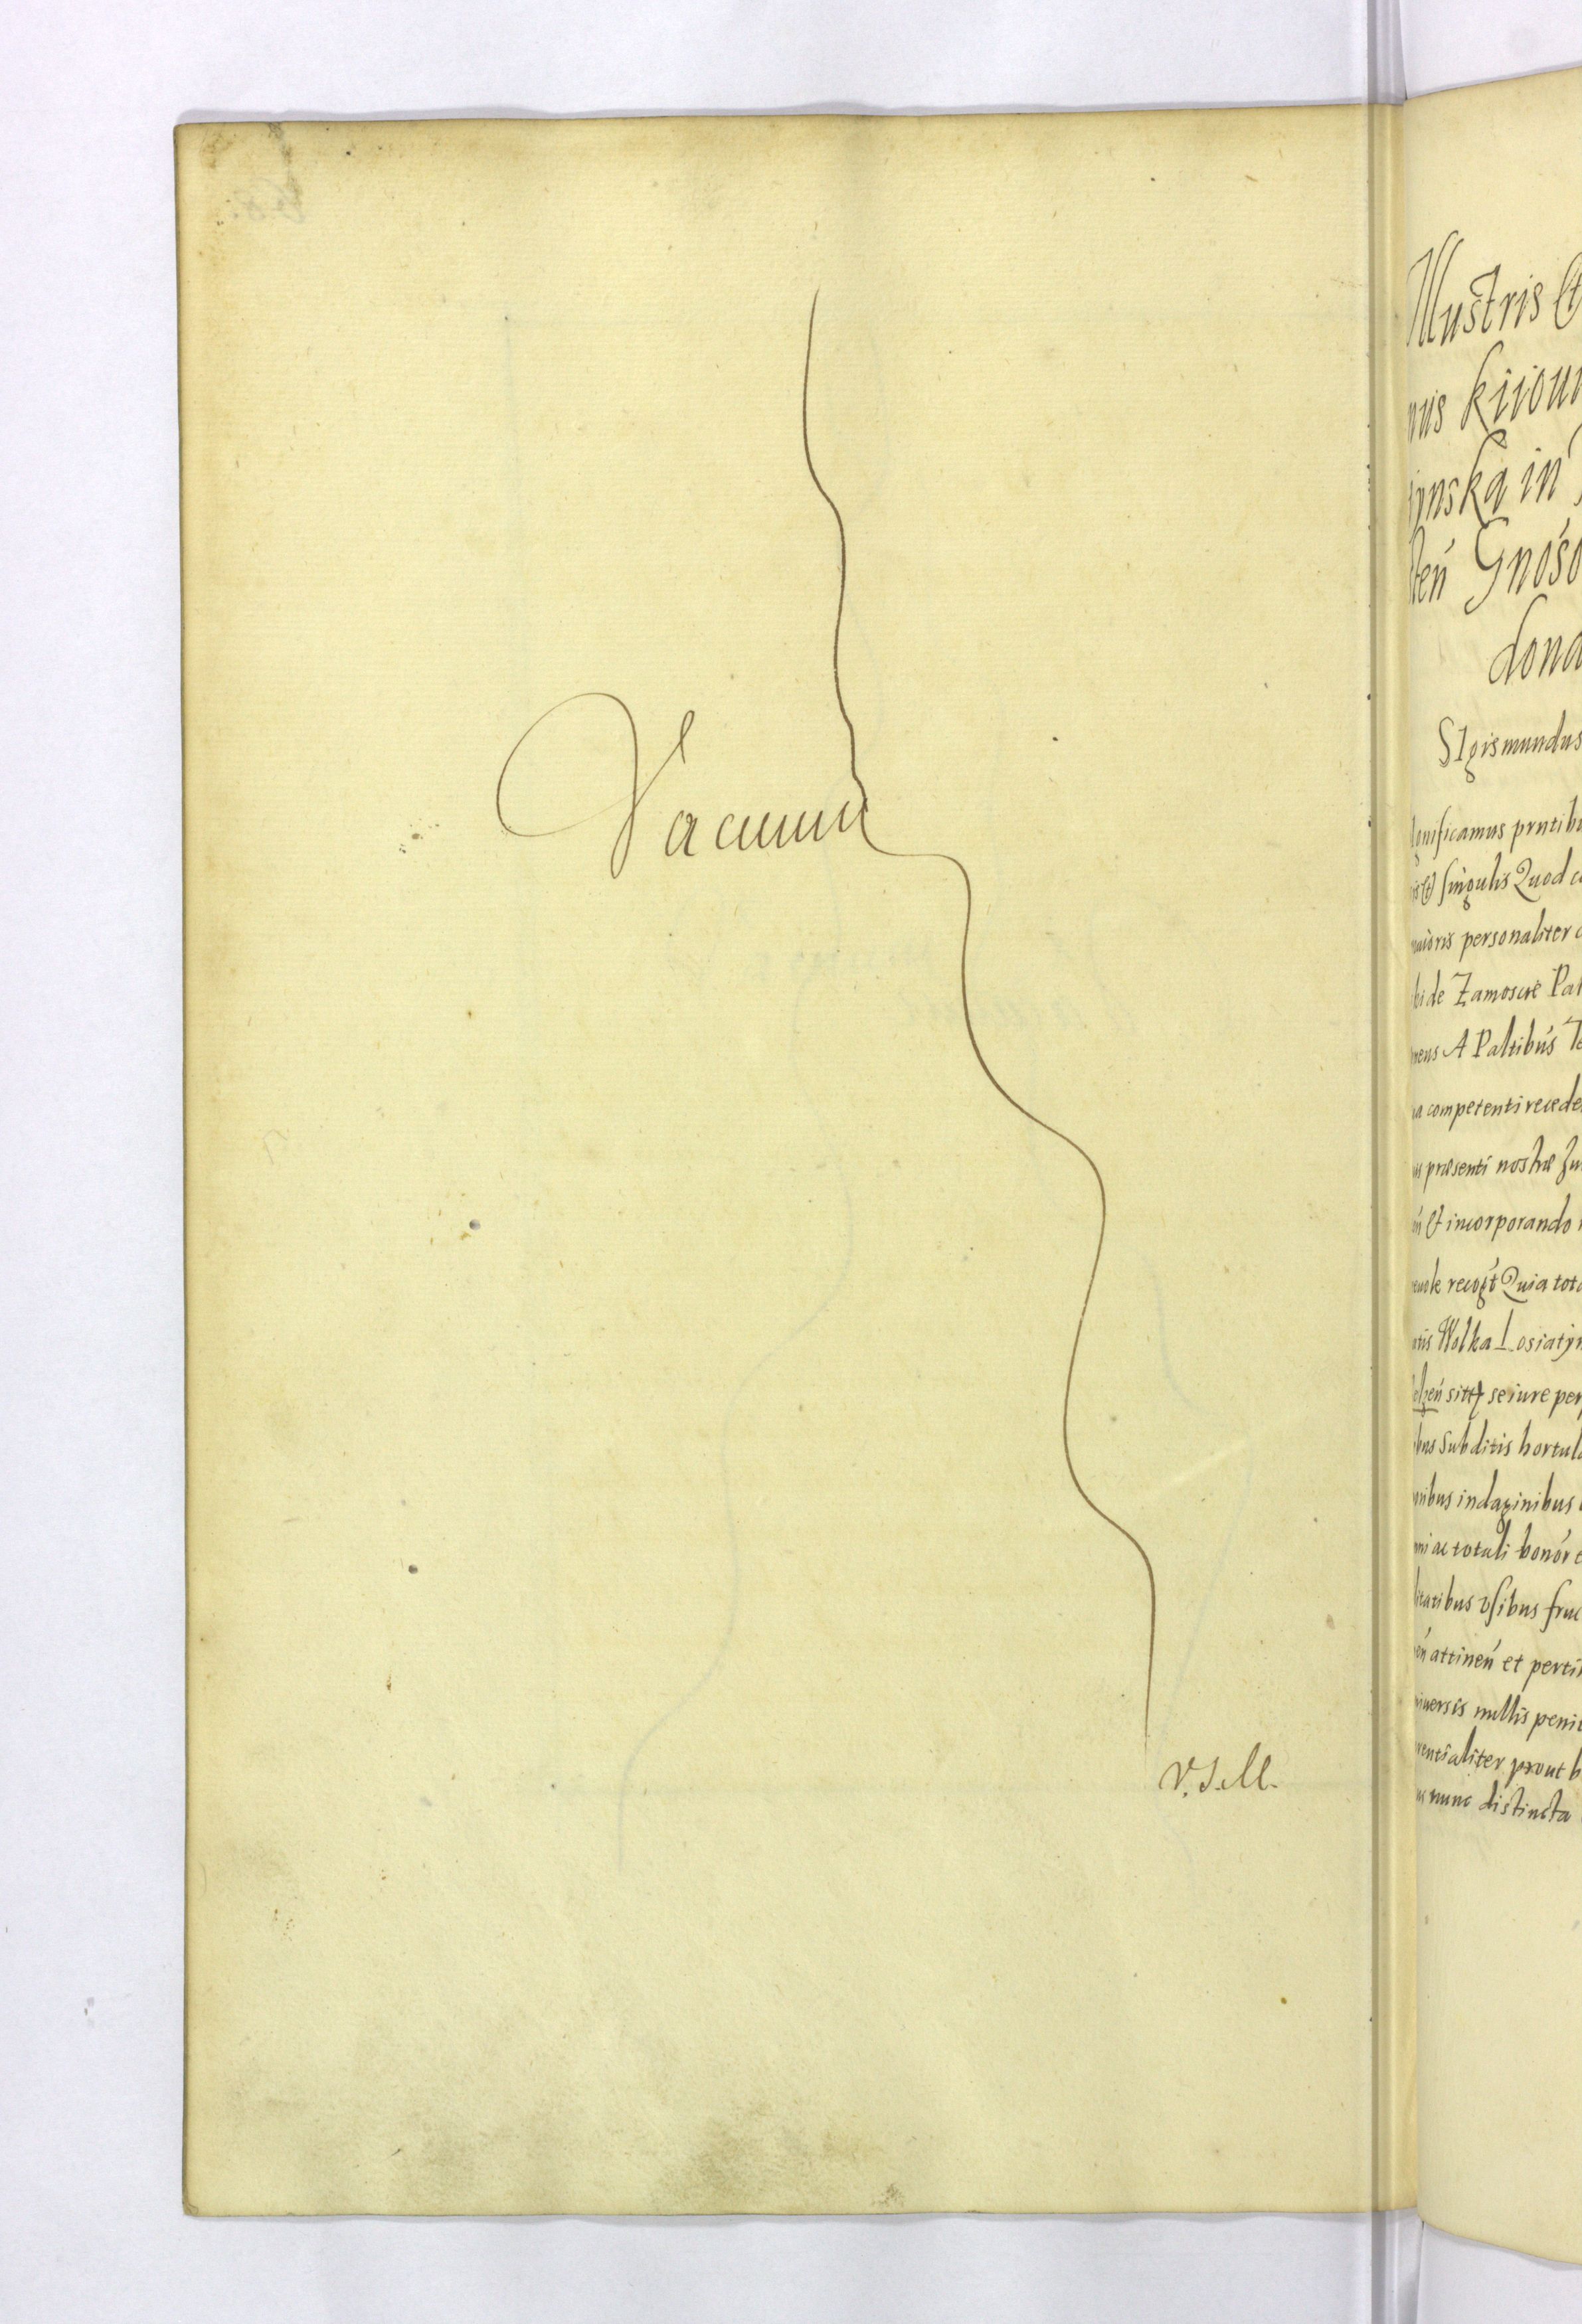 Vacuum
V.S.M.
Illustris Et
nus kiiou
ynska in
ten Gnoso
dona
SIgismundus
gnificamus prntibu
is Et singulis Quod c
maioris personaliter
bi de Zamoscie Pal
neus A Paltibus Te
a competenti recede
us præsenti nostræ Ju
Et incorporando
recogt Quia tot
Wolka Losiatyn
elzen sittis se iure per
bus Subditis hortul
nibus indaginibus
ni ac totali bonor
litatibus vsibus fruc
en attinen et perti
niuersis nullis peni
rentialiter prout b
nunc distincta